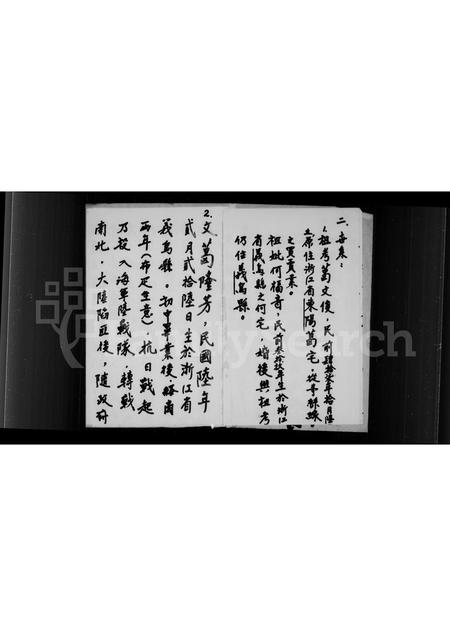 二、世系：
1.祖考葛文後，民前肆拾柒年拾月陸
立原住浙江省東陽葛宅，從事絲綢
之買賣業。
祖妣何福香，民前叁拾玖年生於浙江
省義烏縣之何宅，婚後與祖考
仍住義烏縣。
2.父葛陸芳，民國陸年
貳月貳拾陸日生於浙江省
義烏縣。初中畢業後，經商
兩年（布疋生意），抗日戰起
乃投入海軍陸戰隊，轉戰
南北，大陸陷匪後，隨政府